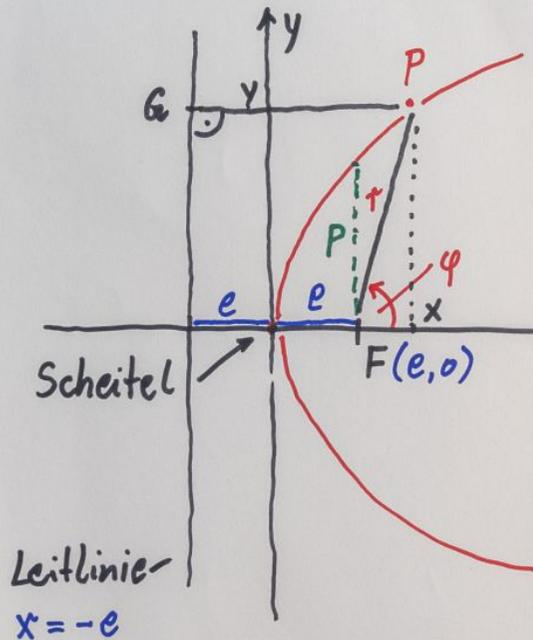 y
P
G y
r
P
φ
e e
x
Scheitel
F(e,0)
Leitlinie
x = -e